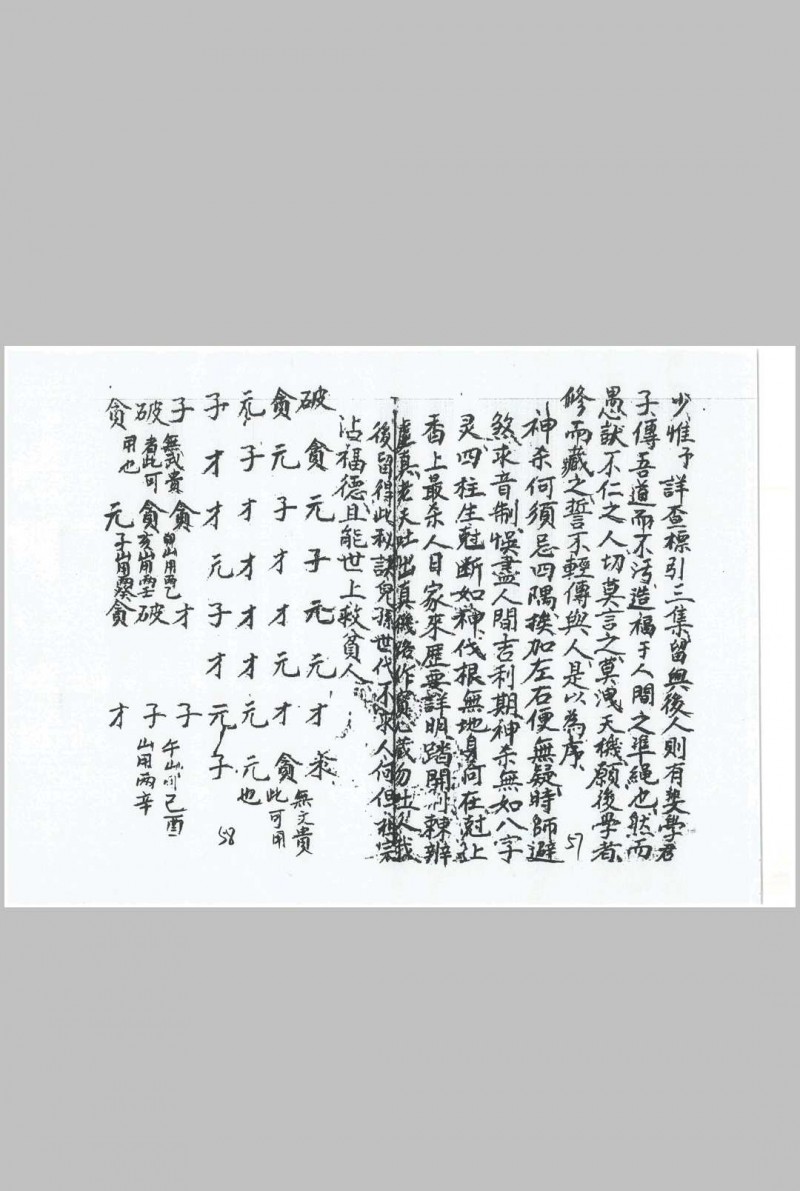 少惟予詳查標引三集留與後人則有婪學君
子傳吾道而不污造福于人間之準繩也然而
愚猷不仁之人切莫言之莫洩天機願後學者
修而藏之誓不輕傳與人是以為序
57
神杀何須忌四隅挨加左右便無疑時師避
煞求音制悞盡人間吉利期神杀無如八字
灵四柱生尅断如神伐根無地身何在尅上
香上最杀人日家來歷要詳明踏開荆棘辦
真老天吐出真磯
後留得此秘訣兒孫世代不求人何但祖宗
沾福德且能世上救貧人
破貪元子元元才
無文貴
貪元子才才元才貪
此可用
元子才才才才元元
也
子才才元子才元子
58
子貪才子
甲山用丙乙
午山 己酉
破貪破子
無武貴者此可用也
亥山用丙壬
山用丙辛
貪元貪才
子山用丙癸